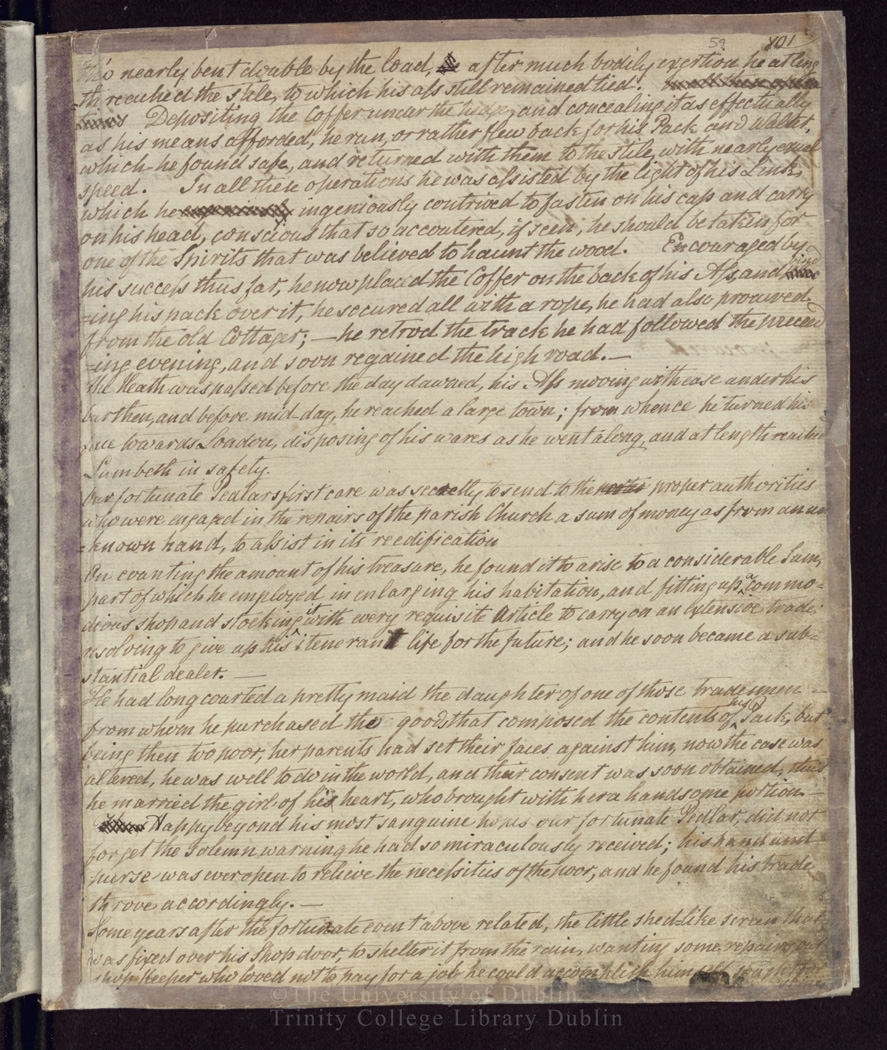 59 101
tho' nearly bent double by the load, after much bodily exertion he at leng
th reached the stile, to which his aſs still remained tied.
Depositing the Coffer under the hedge, and concealing it as effectually
as his means afforded, he ran, or rather flew back for his Pack and Wallet,
which he found safe, and returned with them to the stile, with nearly equal
speed. In all these operations he was aſsisted by the light of his Link,
which he ingeniously contrived to fasten on his cap and carry
on his head, conscious that so accoutered, if seen, he should be taken for
one of the Spirits that was believed to haunt the wood. Encouraged by
his succeſs thus far, he now placed the Coffer on the back of his Aſs, and
=ing his pack over it, he secured all with a rope, he had also procured
from the old Cottager; — he retrod the track he had followed the preced
=ing evening, and soon regained the high road. —
The Heath was paſsed before the day dawned, his Aſs moving with ease under his
burthen, and before mid-day, he reached a large town; from whence he turned his
face towards London, disposing of his wares as he went along, and at length reached
Lambeth in safety.
Our fortunate Pedlars first care was secretly to send to the proper authorities
who were engaged in the repairs of the parish Church a sum of money as from an un
=known hand, to aſsist in its reedification
On counting the amount of his treasure, he found it to arise to a considerable Sum,
part of which he employed in enlarging his habitation, and fitting up a commo=
dious shop and stocking it with every requisite Article to carry on an extensive trade:
resolving to give up his itenerant life for the future; and he soon became a sub=
stantial dealer. —
He had long courted a pretty maid the daughter of one of those tradesmen
from whom he purchased the goods that composed the contents of his Pack, but
being then too poor, her parents had set their faces against him, now the case was
altered, he was well to do in the world, and their consent was soon obtained, thus
he married the girl of his heart, who brought with her a handsome portion —
Happy beyond his most sanguine hopes our fortunate Pedlar, did not
forget the solemn warning he had so miraculously received; his hand and
purse was ever open to relieve the neceſsities of the poor, and he found his trade
throve accordingly. —
Some years after the fortunate event above related, the little shed-like screen that
was fixed over his Shop door, to shelter it from the rain, wanting some repairs, our
shop-keeper who loved not to pay for a job he could accomplish himself,
©The University of Dublin
Trinity College Library Dublin